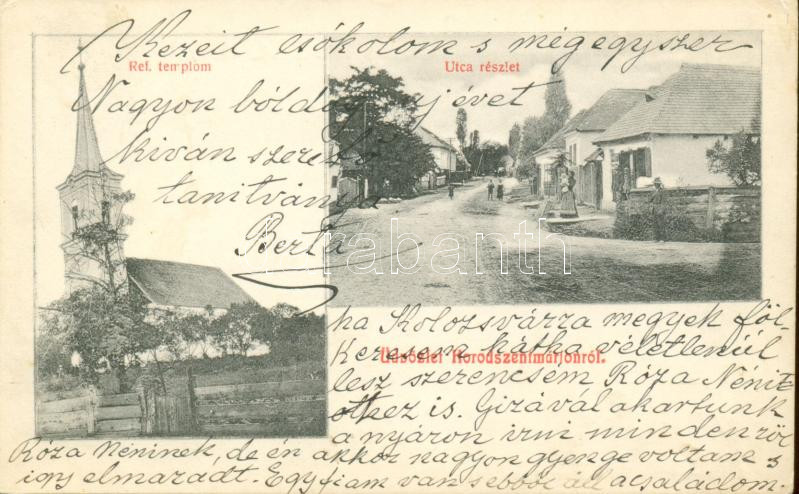 Kezeit csókolom s mégegyszer
Ref. templom
Utca részlet
Nagyon bóldog újévet
kiván szerető
tanitványa
Berta
darabanth
ha Kolozsvárra megyek föl-
keresem hátha véletlenül
Üdvözlet Nerodszentmártonról.
lesz szerencsém Róza Nénit
othez is. Gizával akartunk
a nyáron irni mindenről
Róza Néninek, de én akkor nagyon gyenge voltam s
igy elmaradt. Egy fiam van s ebből áll a családom.